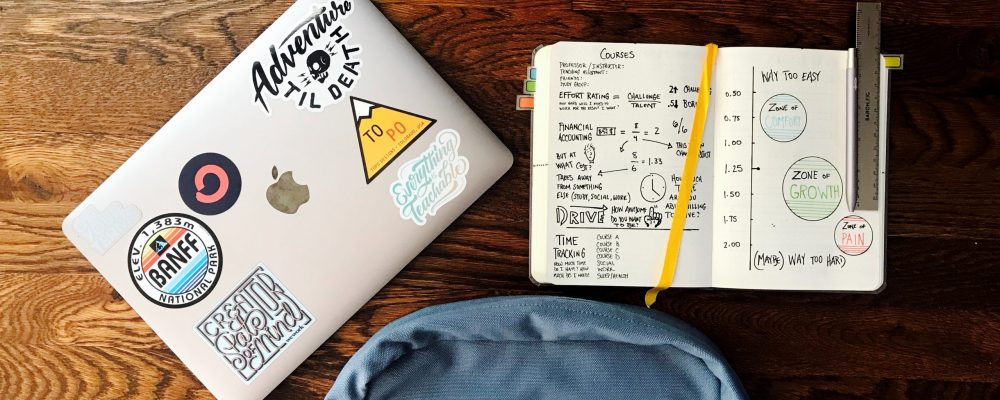 Adventure
'TIL DEATH
TO
PO
TOPO DESIGNS • COLORADO, USA
Everything
is
Touchable
ELEV. 1,383m
BANFF
NATIONAL PARK
CREATOR
of Mind
wework
COURSES
PROFESSOR / INSTRUCTOR:
TEACHING ASSISTANT:
FRIENDS:
STUDY GROUP:
EFFORT RATING = CHALLENGE
TALENT
FINANCIAL
ACCOUNTING
= 8
4 = 2
6/6
BUT AT
WHAT COST?
8
6 = 1.33
TAKES AWAY
FROM SOMETHING
ELSE (STUDY, SOCIAL, WORK)
DRIVE
HOW AWESOME
DO YOU WANT
TO BE?
TIME
TRACKING
HOW MUCH TIME
DO I HAVE? HOW
MUCH DO I WASTE
COURSE A
COURSE B
COURSE C
COURSE D
SOCIAL
WORK
SLEEP/HEALTH
WAY TOO EASY
0.50
0.75
1.00
1.25
1.50
1.75
2.00
ZONE OF
COMFORT
ZONE OF
GROWTH
ZONE OF
PAIN
(MAYBE) WAY TOO HARD